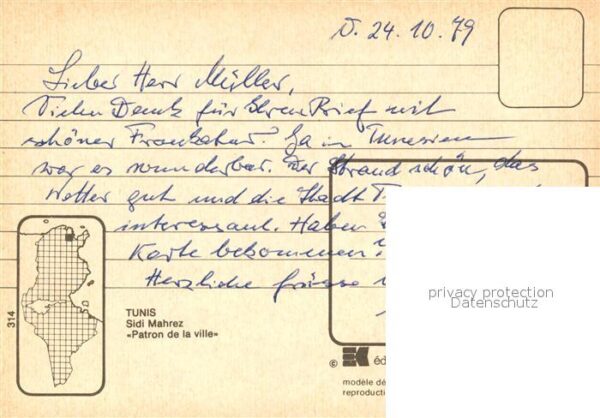 D. 24.10.79
Lieber Herr Müller,
Vielen Dank für Ihren Brief mit
schöner Frankatur. Ja in Tunesien
war es wunderbar. Der Strand schön, das
Wetter gut und die Stadt
interessant. Haben
Karte bekommen?
Herzliche Grüsse
314
TUNIS
Sidi Mahrez
«Patron de la ville»
© EK éd
modèle dé
reproducti
privacy protection
Datenschutz